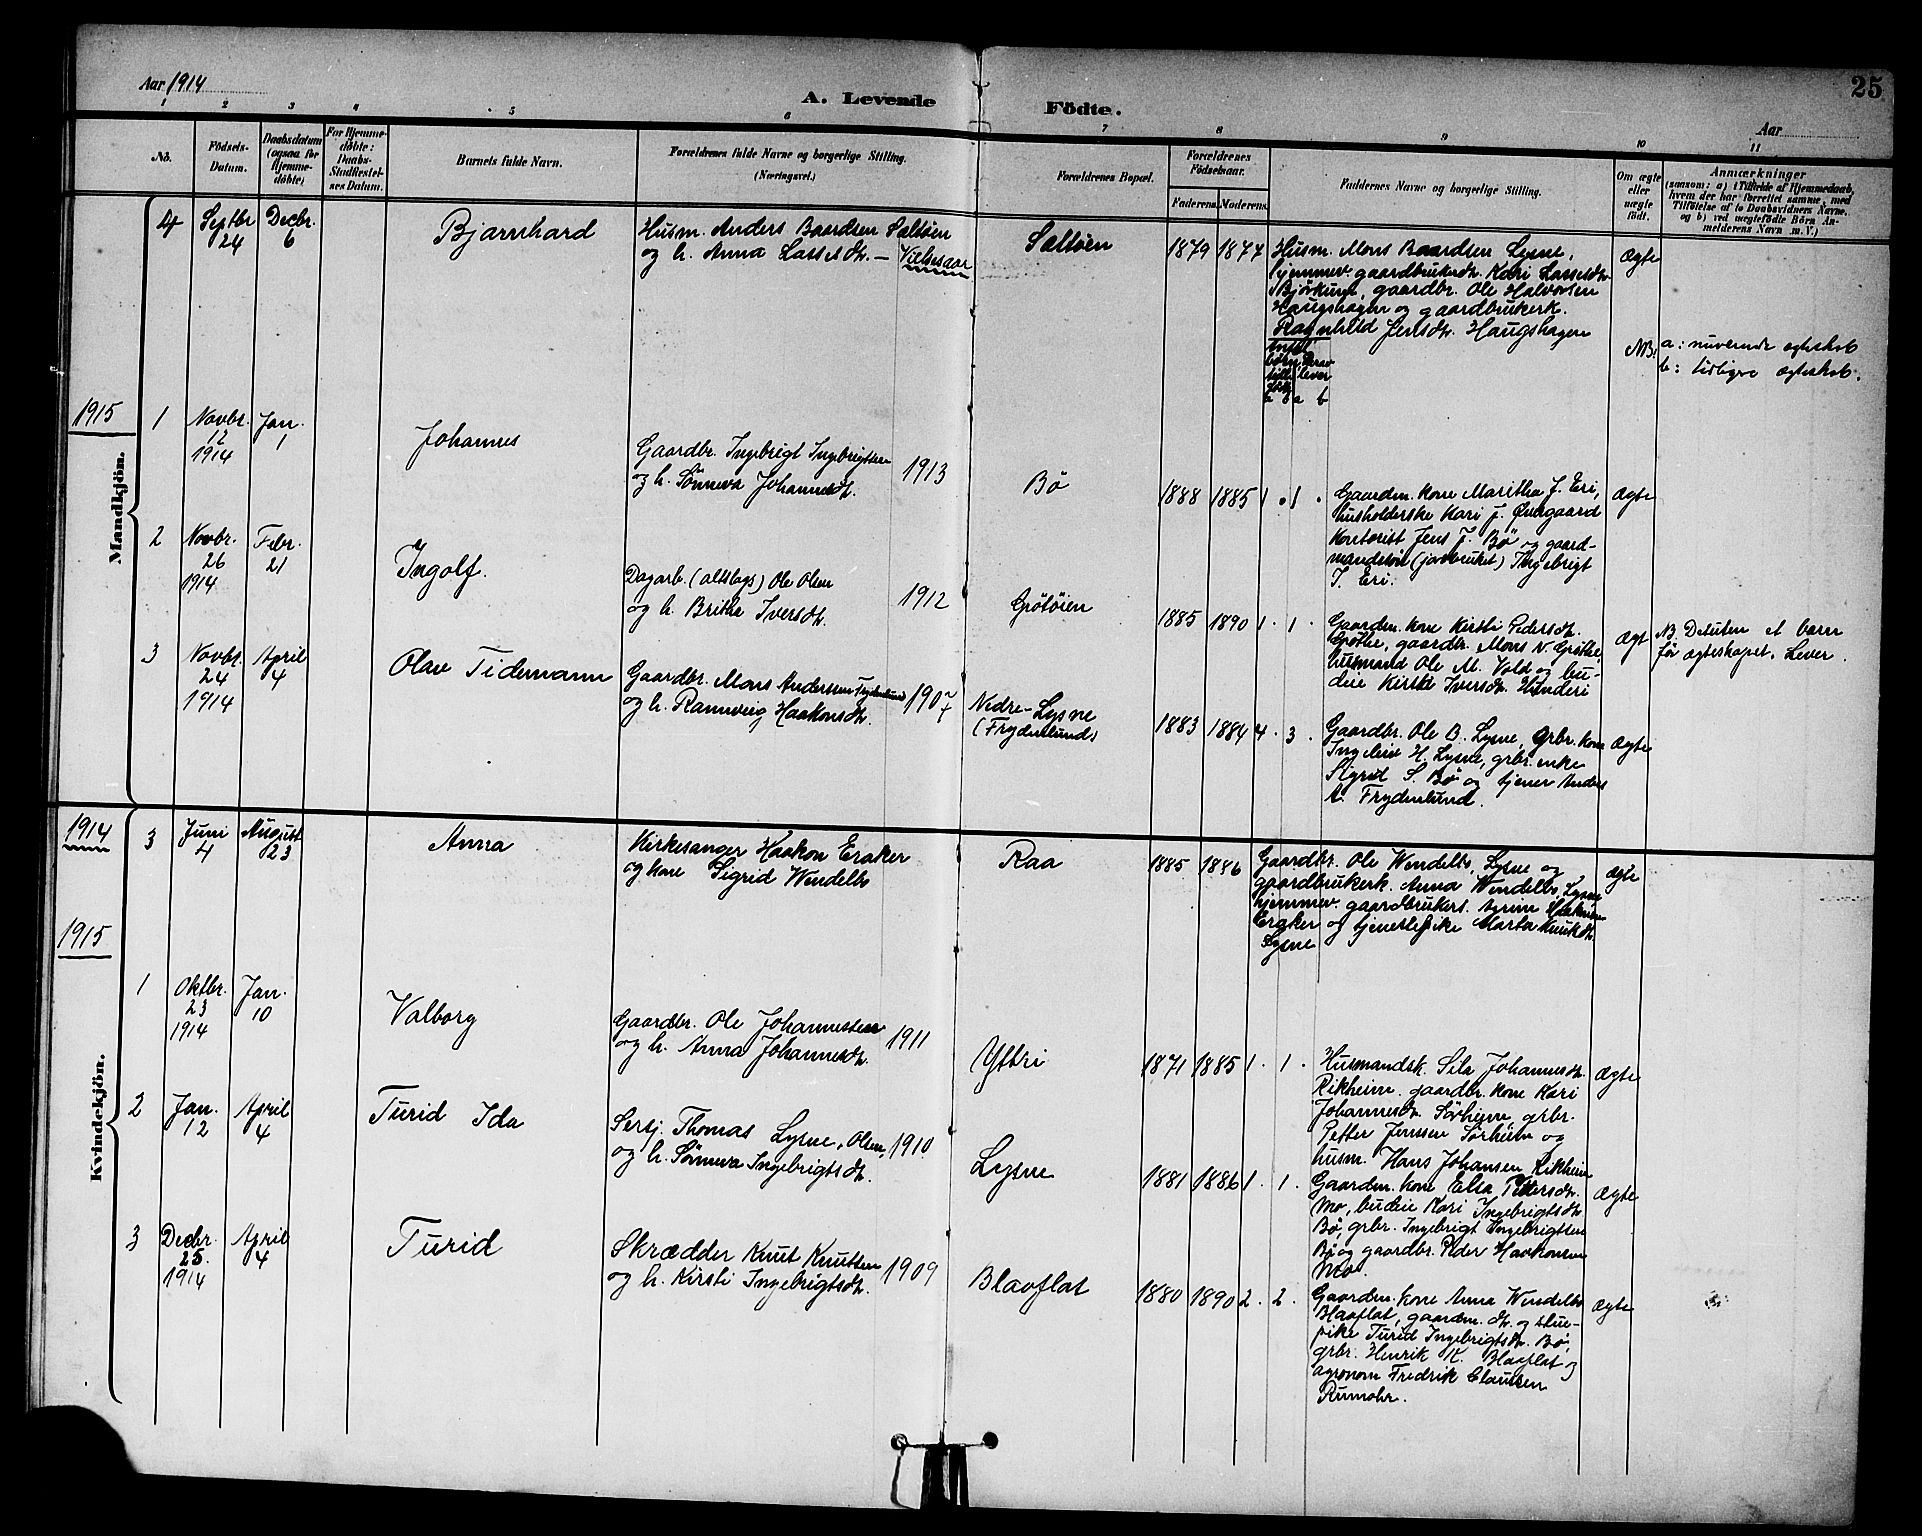 Aar 1914
A. Levende Födte.
25
Aar
1 2 3 4 5 6 7 8 9 10 11
No.
Födsels-Datum.
Daabsdatum (ogsaa for Hjemmedöbte)
For Hjemmedöbte: Daabs-Stadfæstelses Datum.
Barnets fulde Navn.
Forældrenes fulde Navne og borgerlige Stilling. (Næringsvei.)
Forældrenes Bopæl.
Forældrenes Födselsaar.
Faderens. Moderens.
Faddernes Navne og borgerlige Stilling.
Om ægte eller uægte födt.
Anmærkninger
(saasom: a) i Tilfælde af Hjemmedaab, hvem der har forrettet samme, med Tilföielse af to Daabsvidners Navne, og b) ved uægtefödte Börn Anmelderens Navn m. V.)
Mandkjön.
4 Septbr 24 Decbr. 6
Bjarnhard
Husm. Anders Baardsen Sæltøen
og h. Anna Lassesdtr. – Vielsesaar
Sæltøen
1879 1877
Husm. Mons Baardsen Lysne,
hjemmev. gaardbrukerdtr. Kari Lassesdtr.
Bjørkum, gaardbr. Ole Halvorsen
Haugshagen og gaardbrukerk.
Ragnhild Jensdtr. Haugshagen
Ægte
Antal børn ialt
Derav lever
a b a b
NB! a: nuværende ægteskab
b: tidligre ægteskab.
1915
1 Novbr. 12 1914 Jan. 1
Johannes
Gaardbr. Ingebrigt Ingebrigtsen
og h. Sønneva Johannesdtr.
1913
Bø
1888 1885 1 . 1 .
Gaardm. kone Maritha J. Eri,
husholderske Kari J. Øvregaard
Kontorist Jens J. Bø og gaard-
mandssøn (jordbruket) Ingebrigt
J. Eri.
Ægte
2 Novbr. 26 1914 Febr. 21
Ingolf.
Dagarb. (altslags) Ole Olsen
og h. Brithe Iversdtr.
1912
Grøtøien
1885 1890 1 . 1 .
Gaardm. kone Kirsti Pedersdtr.
Grøthe, gaardbr. Mons N. Grøthe,
husmand Ole M. Vold og bu-
deie Kirsti Iversdtr. Hunderi
Ægt
NB Desuten et barn
før ægteskapet. Lever.
3 Novbr. 24 1914 April 4
Olav Tidemann
Gaardbr. Mons Andersen Frydenlund
og h. Rannveig Haakonsdtr.
1907
Nedre-Lysne
(Frydenlund)
1883 1884 4 . 3 .
Gaardbr. Ole B. Lysne, grbr. kone
Ingeleiv H. Lysne, grbr. enke
Sigrid S. Bø og tjener Anders
A. Frydenlund.
Ægte
Kvindekjön.
1914
3 Juni 4 August 23
Anna
Kirkesanger Haakon Eraker
og kone Sigrid Wendelbo
Raa
1885 1886
Gaardbr. Ole Wendelbo, Lysne og
gaardbrukerk. Anna Wendelbo, Lysne
hjemmev. gaardbrukers. Haakonsen
Eraker og tjenestepike Marta Knutsdtr.
Lysne
ægte
1915
1 Oktbr. 23 1914 Jan. 10
Valborg
Gaardbr. Ole Johannessen
og h. Anna Johannesdtr.
1911
Yttri
1871 1885 1 . 1 .
Husmandsk. Sila Johannesdtr.
Rikheim, gaardbr. kone Kari
Johannesdtr. Sørheim, grbr.
Petter Jenssen Sørheim og
husm. Hans Johansen Rikheim
Ægte
2 Jan. 12 April 4
Turid Ida
Sersj. Thomas Lysne, Olsen,
og h. Sønneva Ingebrigtsdtr.
1910
Lysne
1881 1886 1 . 1 .
Gaardm. kone Elsa Pettersdtr.
Mo, budeie Kari Ingebrigtsdtr.
Bø, grbr. Ingebrigt Ingebrigtsen
Bø og gaardbr. Peder Haakonsen
Mo.
Ægte
3 Decbr. 25. 1914 April 4
Turid
Skrædder Knut Knutsen
og h. Kirsti Ingebrigtsdtr.
1909
Blaaflat
1880 1890 2 . 2 .
Gaardm. kone Anna Wendelbo
Blaaflat, gaardm. dtr. og stue-
pike Turid Ingebrigtsdtr. Bø,
grbr. Henrik K. Blaaflat og
agronom Fredrik Claussen
Rumohr.
Ægte